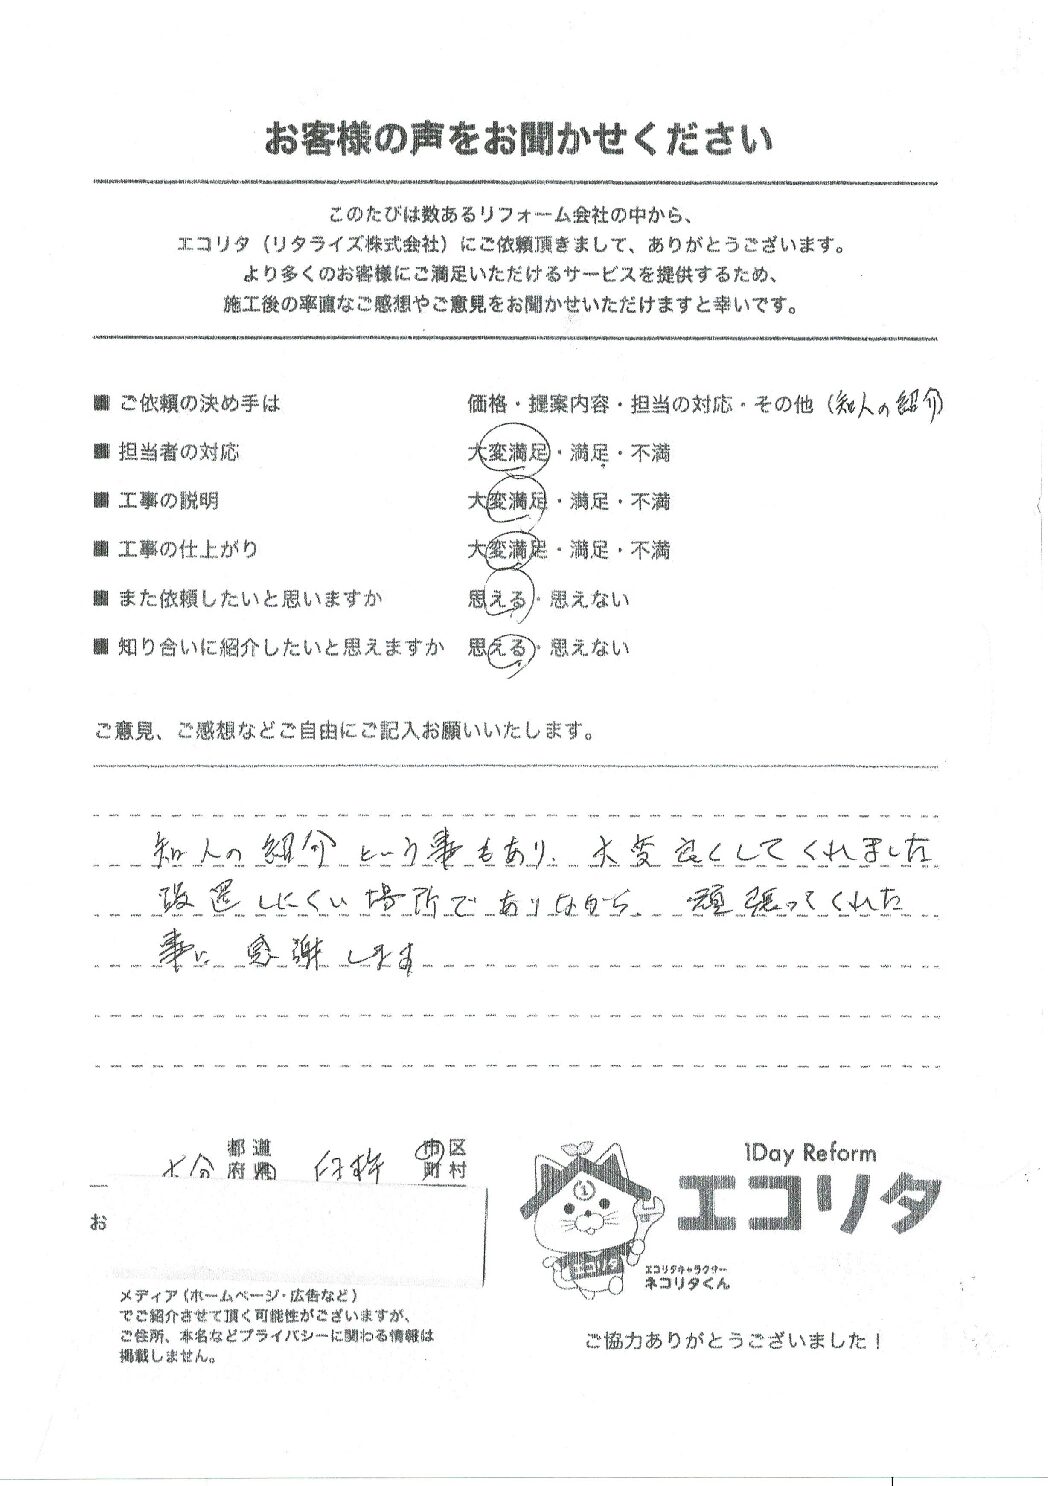 お客様の声をお聞かせください
このたびは数あるリフォーム会社の中から、
エコリタ（リタライズ株式会社）にご依頼頂きまして、ありがとうございます。
より多くのお客様にご満足いただけるサービスを提供するため、
施工後の率直なご感想やご意見をお聞かせいただけますと幸いです。
■ ご依頼の決め手は 価格・提案内容・担当の対応・その他（知人の紹介）
■ 担当者の対応 大変満足・満足・不満
■ 工事の説明 大変満足・満足・不満
■ 工事の仕上がり 大変満足・満足・不満
■ また依頼したいと思いますか 思える・思えない
■ 知り合いに紹介したいと思えますか 思える・思えない
ご意見、ご感想などご自由にご記入お願いいたします。
知人の紹介という事もあり、大変良くしてくれました
設置しにくい場所でありながら、頑張ってくれた
事に感謝します
大分 都道府県 臼杵 市区町村
お
メディア（ホームページ・広告など）
でご紹介させて頂く可能性がございますが、
ご住所、本名などプライバシーに関わる情報は
掲載しません。
1Day Reform
エコリタ
エコリタ
エコリタキャラクター
ネコリタくん
ご協力ありがとうございました！